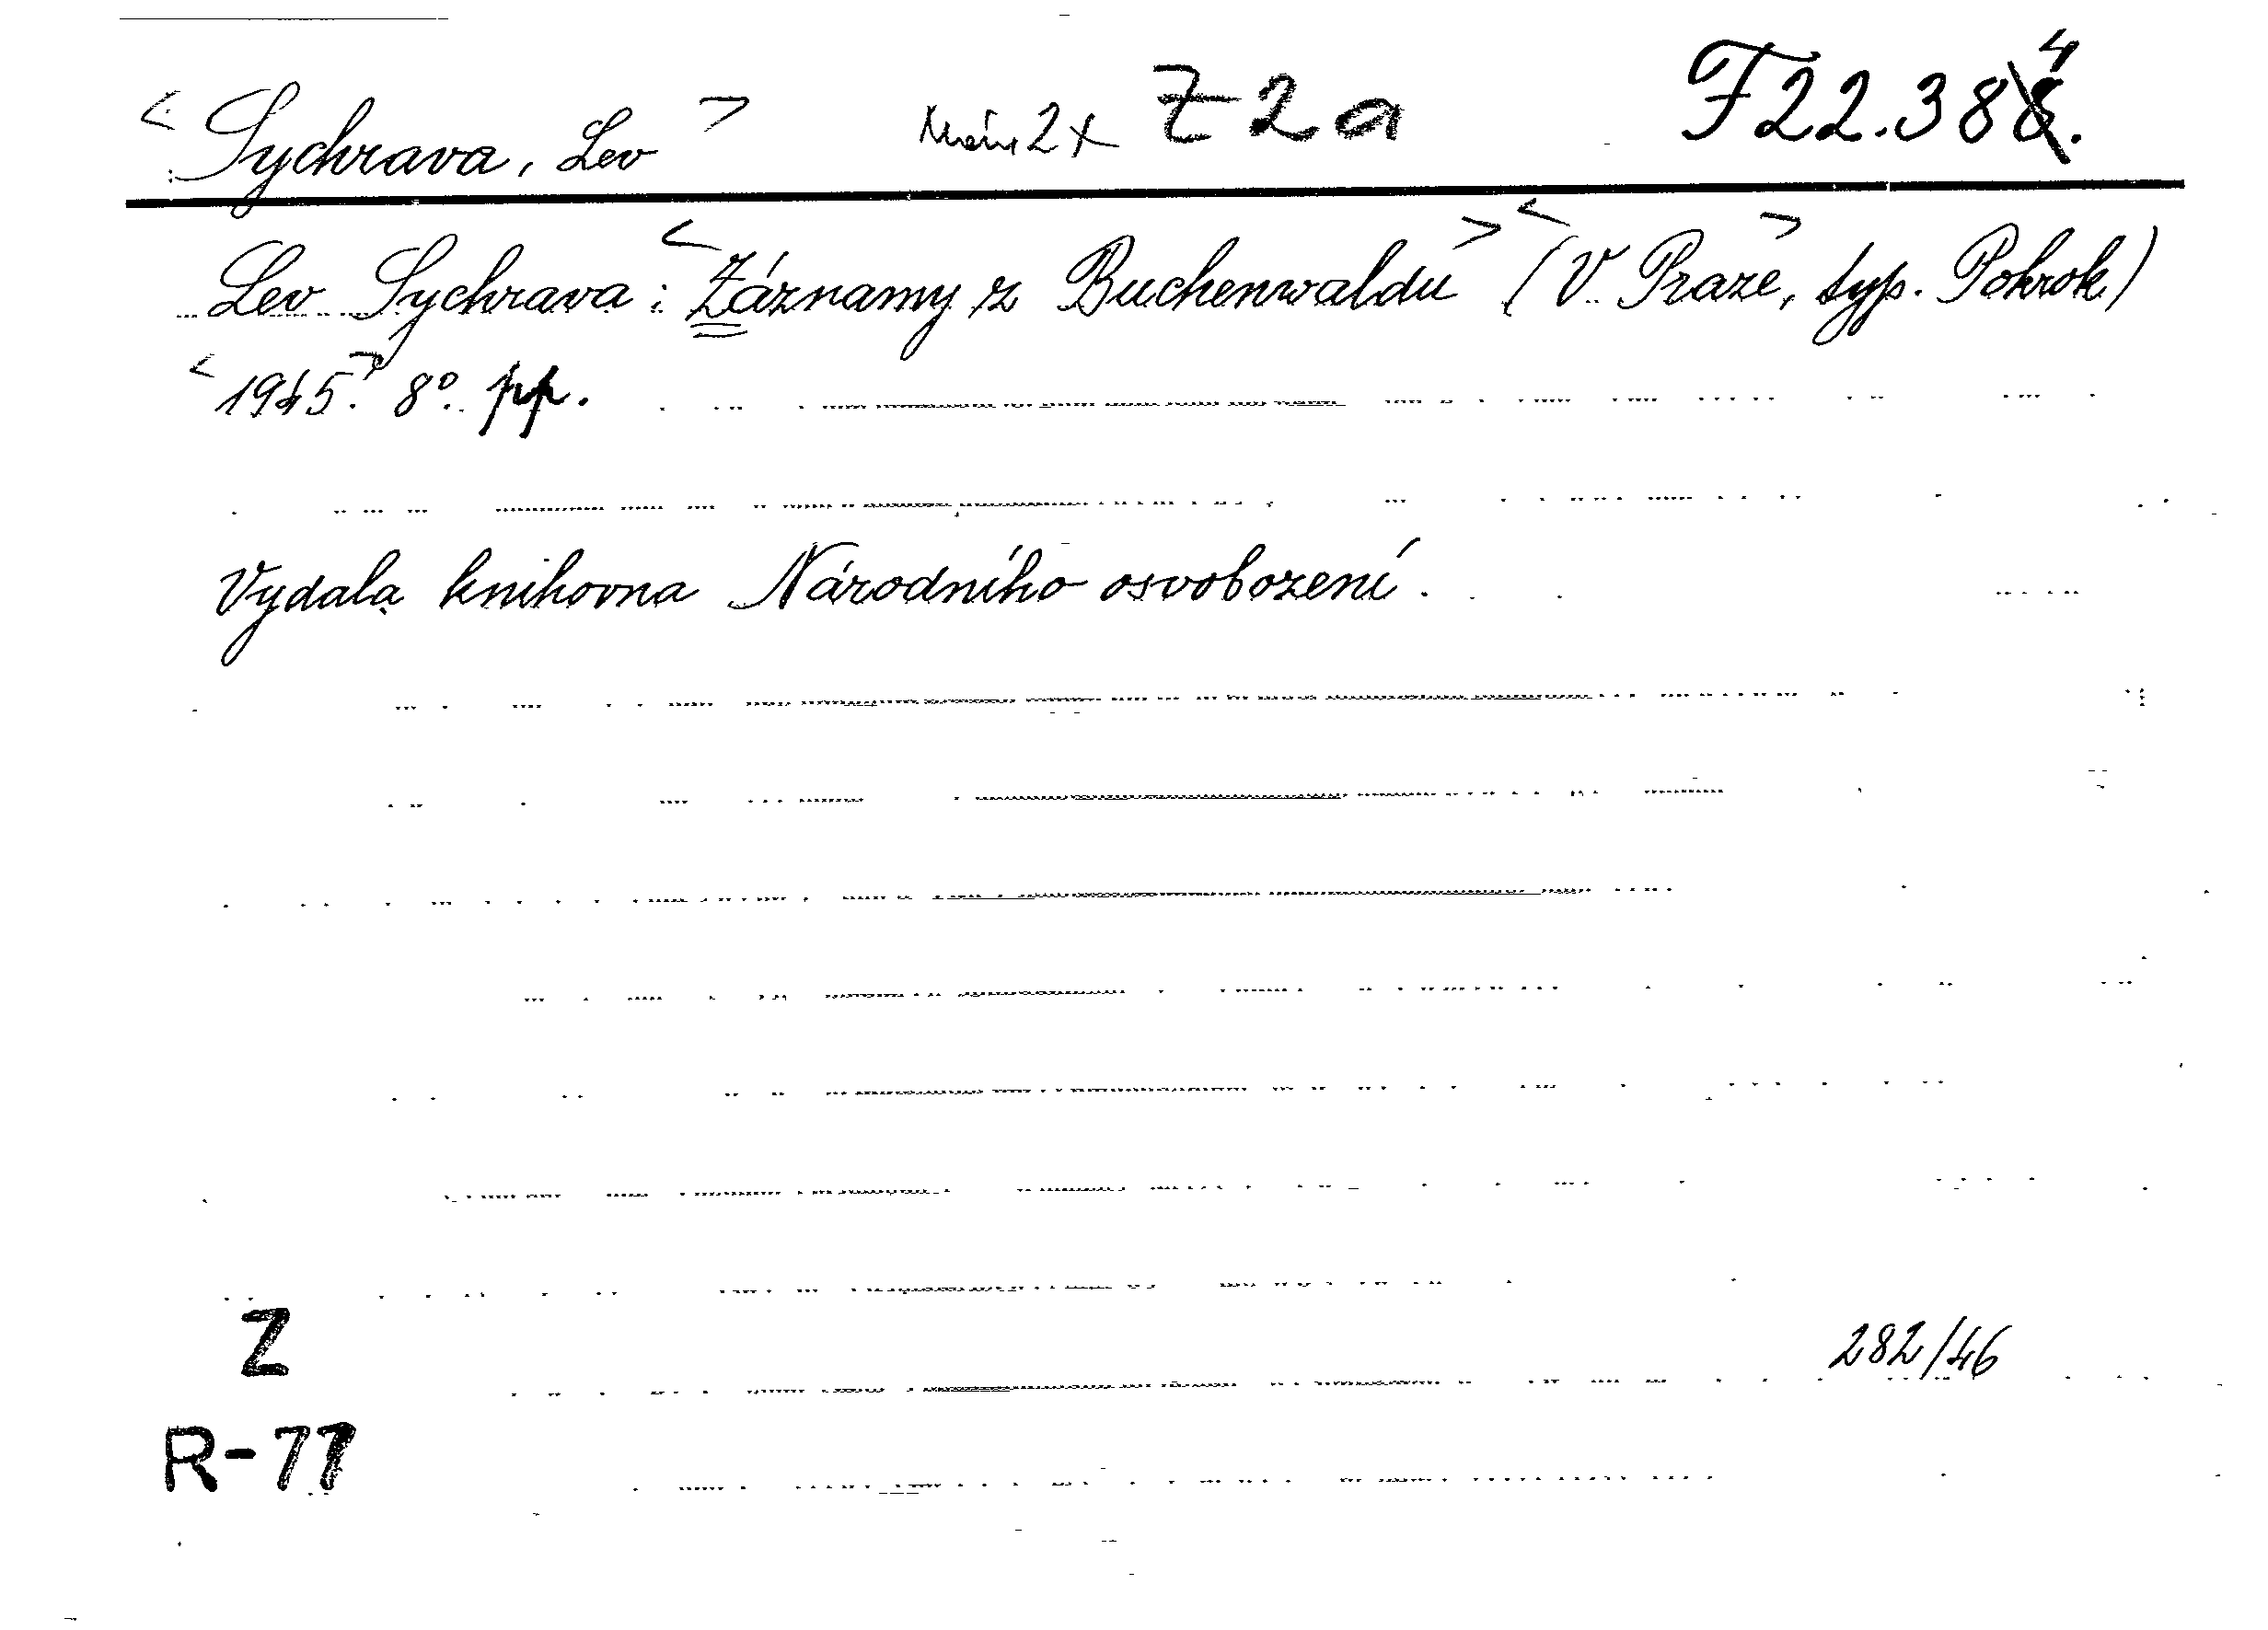 <Sychrava, Lev> 2x Z2a F22.384.
Lev Sychrava: <Záznamy z Buchenwaldu> <(V Praze>, typ. Pokrok)
<1945.> 8° pp.
Vydala knihovna Národního osvobození.
Z
282/46
R-77